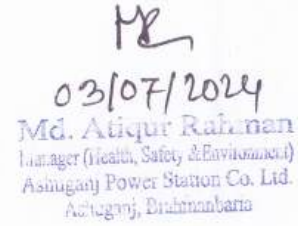 03/07/2024
Md. Atiqur Rahman
Manager (Health, Safety & Environment)
Ashuganj Power Station Co. Ltd.
Ashuganj, Brahmanbaria